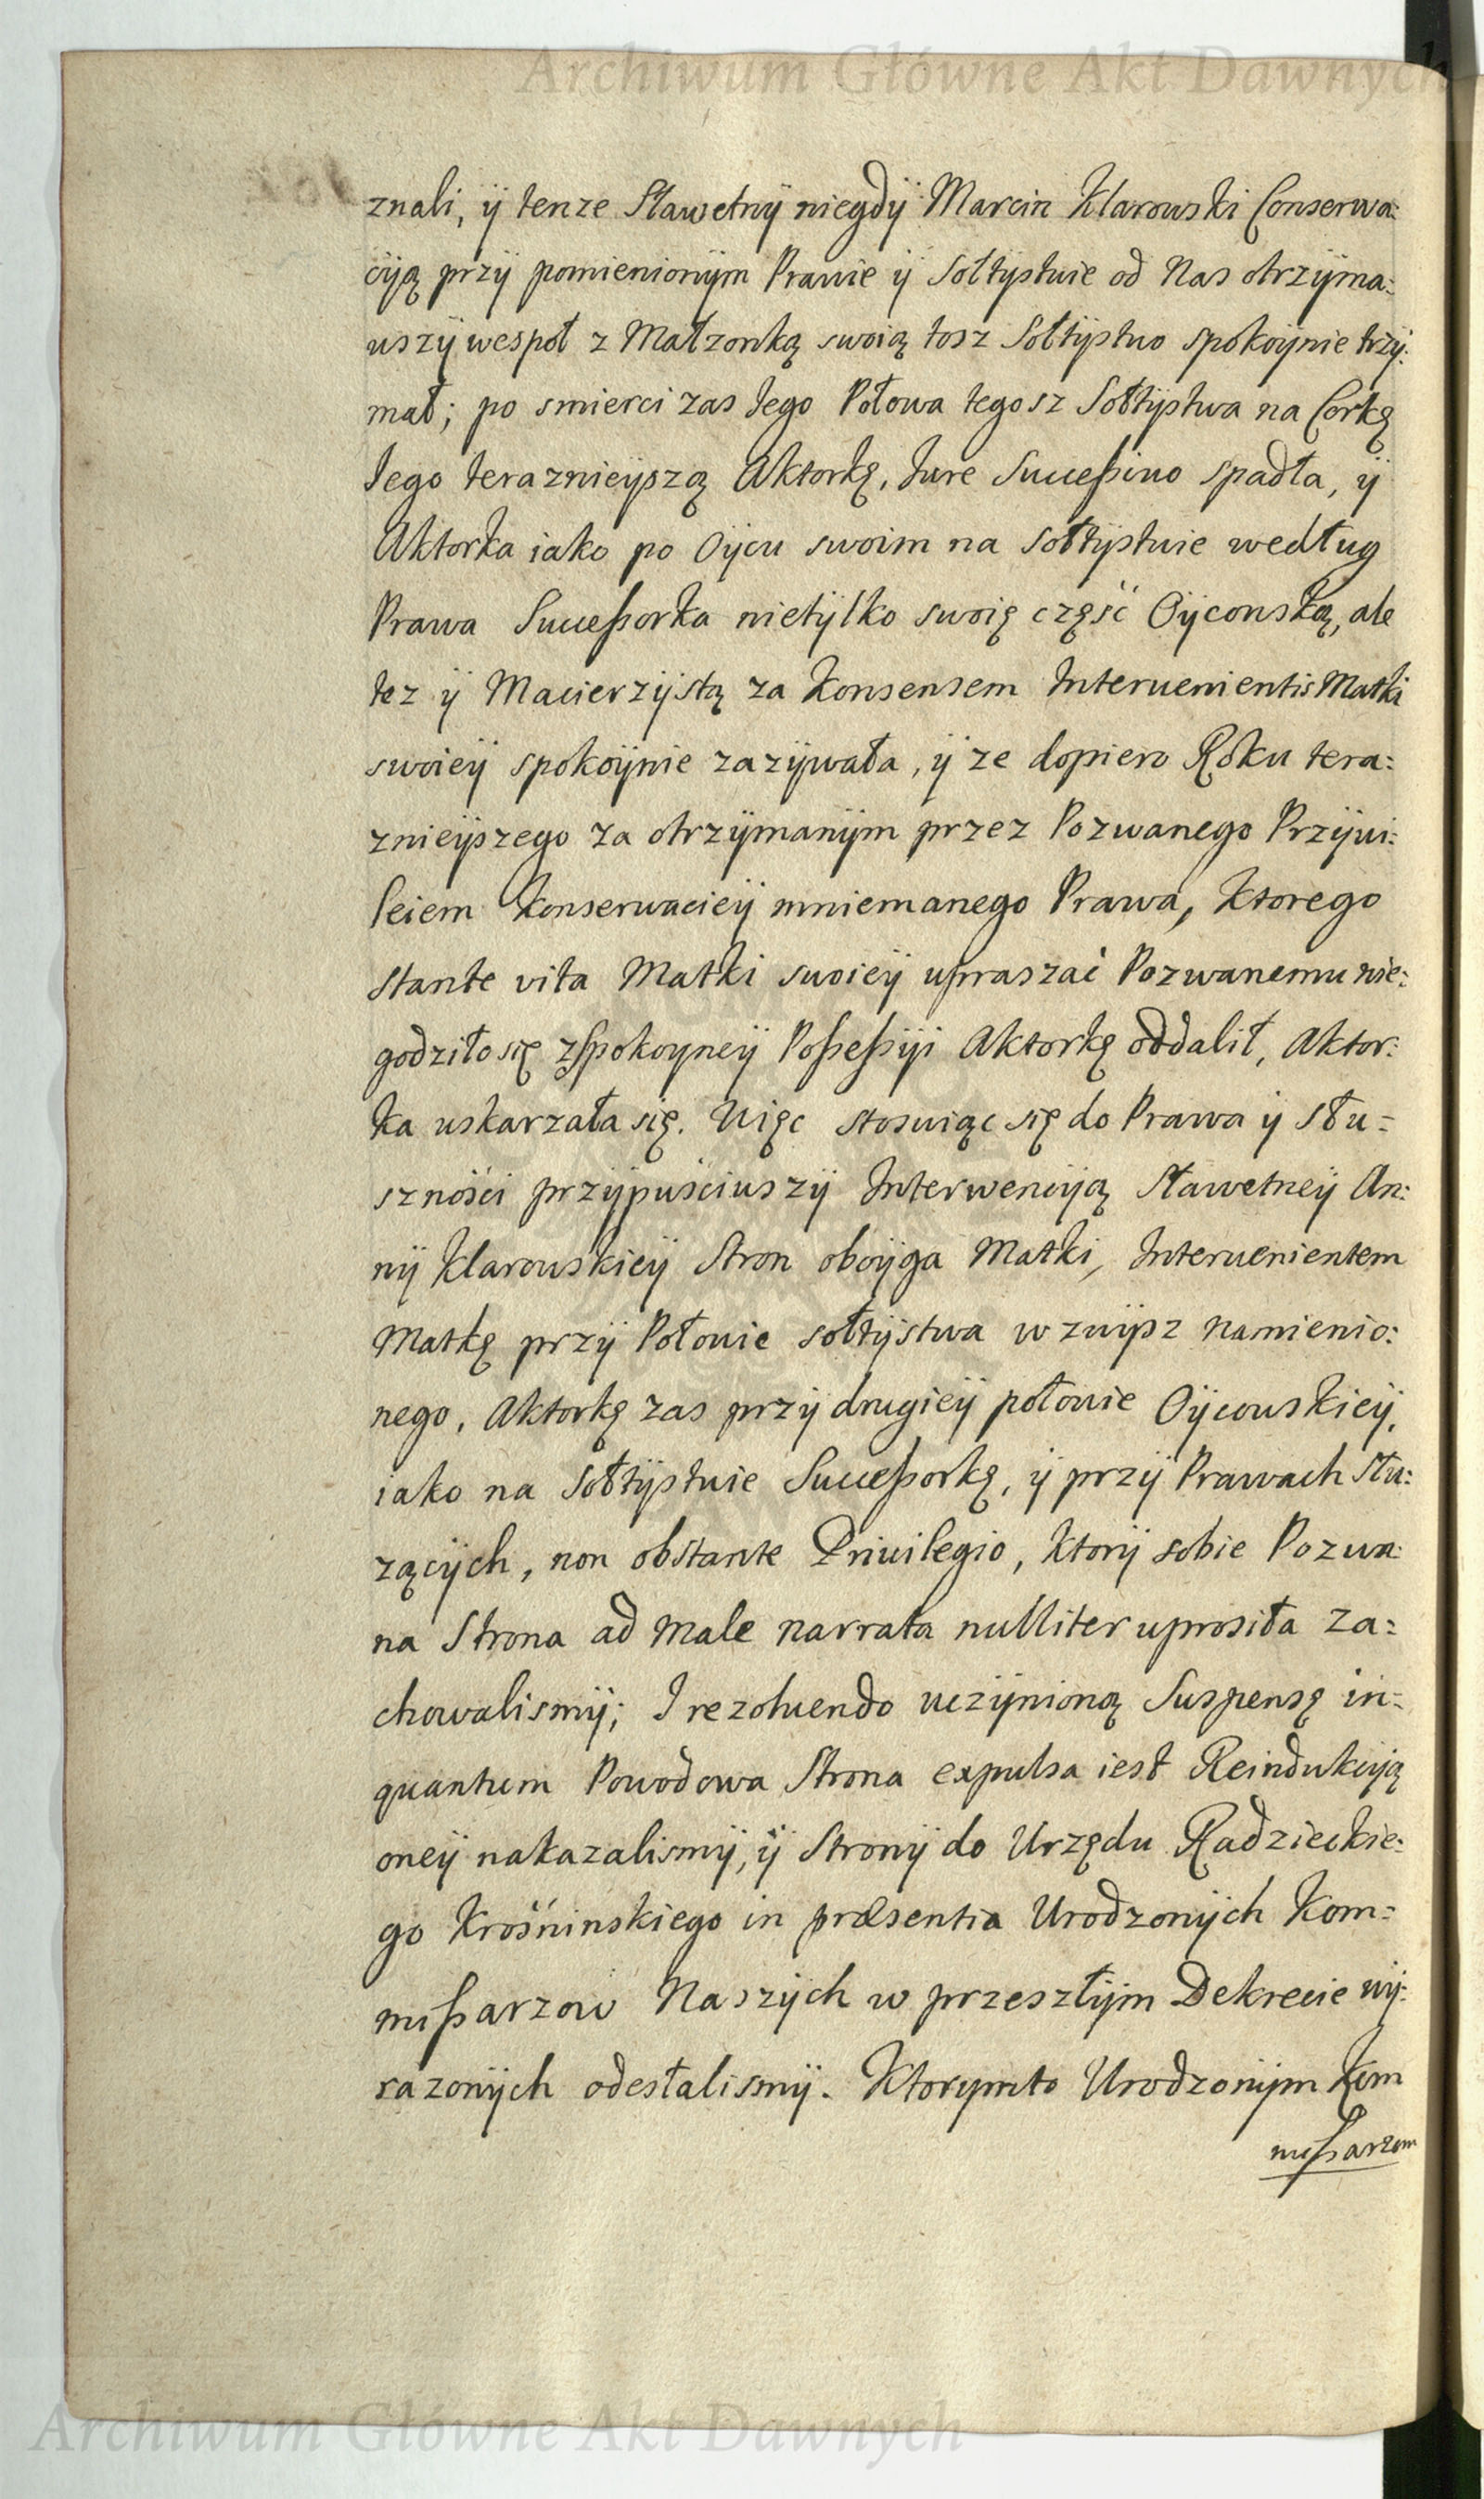 Archiwum Główne Akt Dawnych
znali, ÿ tenze Sławetnÿ niegdÿ Marcin Klarowski Conserwa:
cÿą przÿ pomienionÿm Prawie ÿ Sołtÿstwie od Nas otrzÿma:
wszÿ wespoł z Małzonką swoią tosz Sołtÿstwo spokoÿnie trzÿ:
mał; po smierci zas Jego Połowa tegosz Sołtÿstwa na Corkę
Jego teraznieÿszą Aktorkę, Jure Succeßivo spadła, ÿ
Aktorka iako po Oÿcu swoim na Sołtÿstwie według
Prawa Succeßorka nietÿlko swoię część Oÿcowską, ale
tez ÿ Macierzÿstą za Konsensem Intervenientis Matki
swoieÿ spokoÿnie zazÿwała, ÿ ze dopiero Roku tera:
znieÿszego za otrzÿmanÿm przez Pozwanego Przÿwi:
leiem Konserwacieÿ mniemanego Prawa, Ktorego
stante vita Matki swoieÿ upraszać Pozwanemu nie:
godziło się zspokoyneÿ Poßeßÿi Aktorkę oddalił, Aktor:
ka uskarzała się. Więc stosuiąc się do Prawa ÿ słu=
szności przÿpuściwszÿ Interwencÿą Sławetneÿ An:
nÿ Klarowskieÿ Stron oboÿga Matki, Intervenientem
Matkę przÿ Połowie sołtÿstwa wzwÿsz namienio:
nego, Aktorkę zas przÿ drugieÿ połowie Oÿcowskieÿ,
iako na Sołtÿstwie Succeßorkę, ÿ przÿ Prawach słu:
zącÿch, non obstante Privilegio, ktorÿ sobie Pozwa:
na Strona ad male narrata nulliter uprosiła za=
chowalismÿ; I rezolvendo uczÿnioną Suspensę in=
quantum Powodowa Strona expulsa iest Reindukcÿą
oneÿ nakazalismÿ, ÿ Stronÿ do Urzędu Radzieckie:
go Krośninskiego in præsentia Urodzonÿch Kom=
mißarzow Naszÿch w przeszłÿm Dekrecie wÿ:
razonÿch odesłalismÿ. Ktorymto Urodzonÿm Kom
mißarzom
Archiwum Główne Akt Dawnych